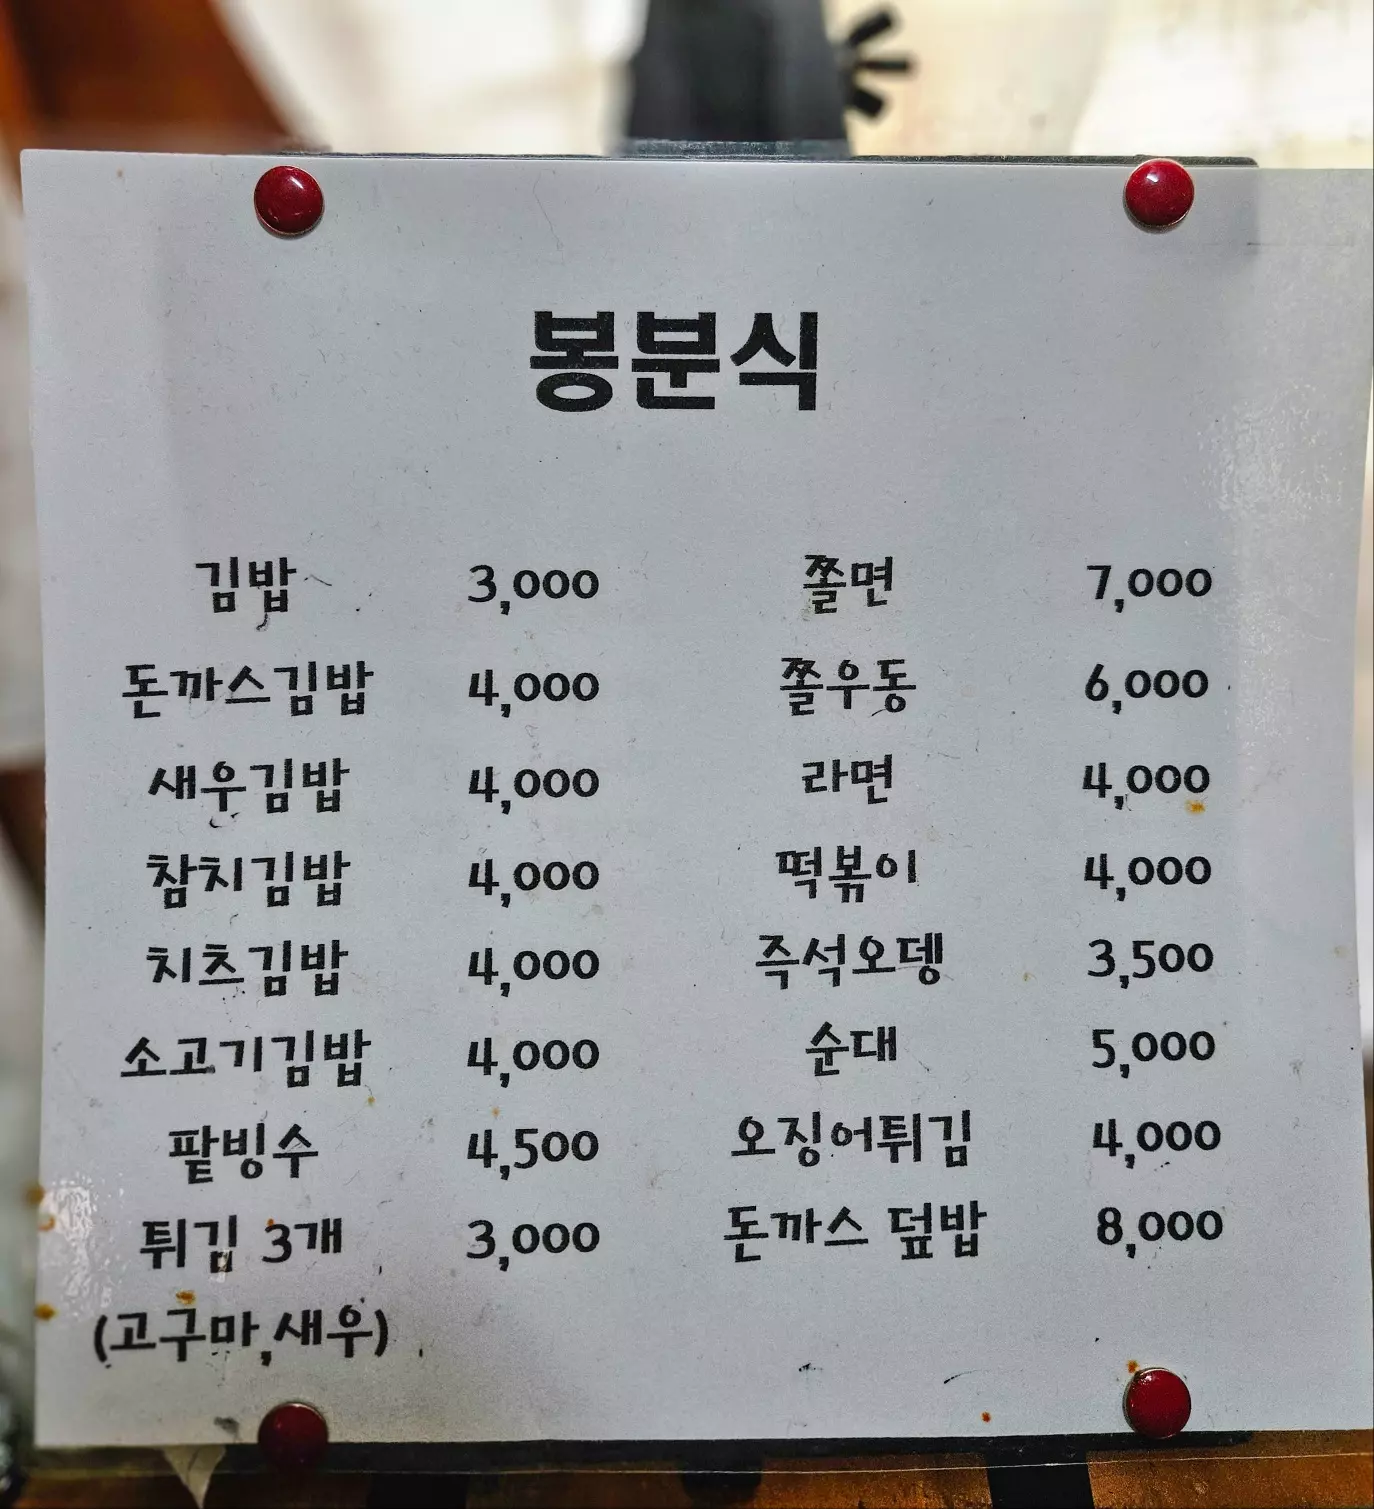 봉분식
김밥 3,000 쫄면 7,000
돈까스김밥 4,000 쫄우동 6,000
새우김밥 4,000 라면 4,000
참치김밥 4,000 떡볶이 4,000
치즈김밥 4,000 즉석오뎅 3,500
소고기김밥 4,000 순대 5,000
팥빙수 4,500 오징어튀김 4,000
튀김 3개 3,000 돈까스 덮밥 8,000
(고구마,새우)